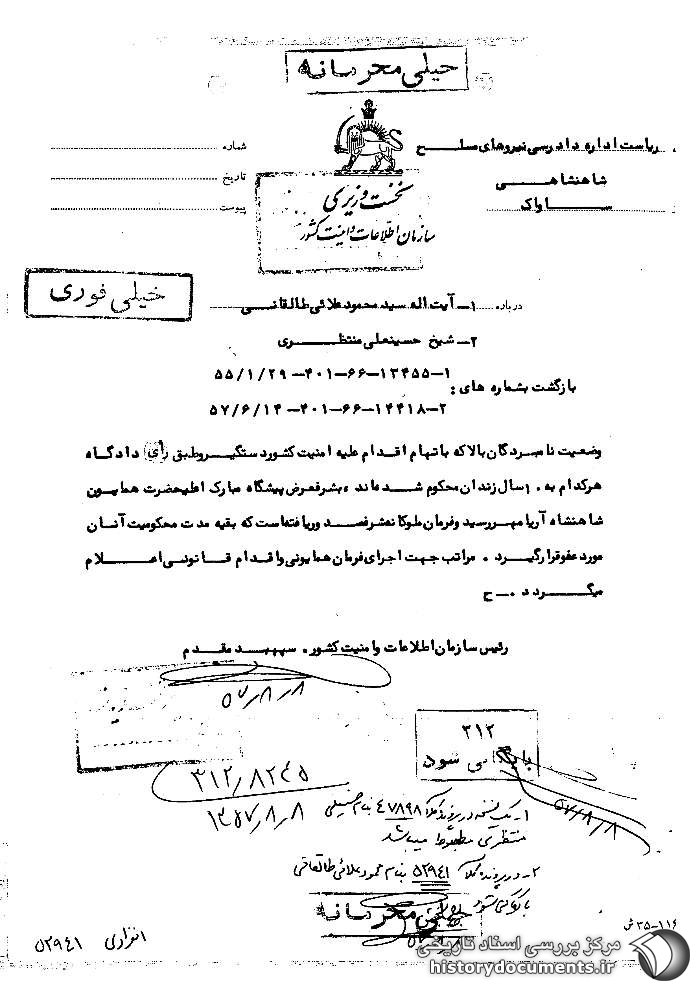 خیلی محرمانه
ریاست اداره دادرسی نیروهای مسلح
شاهنشاهی
ساواک
شماره
تاریخ
پیوست
نخست وزیری
سازمان اطلاعات و امنیت کشور
خیلی فوری
درباره ۱- آیت اله سید محمود علائی طالقانی
۲- شیخ حسینعلی منتظری
بازگشت بشماره های :
۱-۱۳۴۵۵-۶۶-۴۰۱-۵۵/۱/۲۹
۲-۱۴۴۱۸-۶۶-۴۰۱-۵۷/۶/۱۴
وضعیت نامبردگان بالا که باتهام اقدام علیه امنیت کشور دستگیر و طبق رأی دادگاه
هرکدام به ۱۰ سال زندان محکوم شده اند ، بشرفعرض پیشگاه مبارک اعلیحضرت همایون
شاهنشاه آریامهر رسید و فرمان ملوکانه شرفصدور یافته است که بقیه مدت محکومیت آنان
مورد عفو قرار گیرد . مراتب جهت اجرای فرمان همایونی و اقدام قانونی اعلام
میگردد . ح
رئیس سازمان اطلاعات و امنیت کشور . سپهبد مقدم
۵۷/۸/۸
۳۱۲
بایگانی شود
۵۷/۸/۸
۳۱۲/۸۲۴۵
۱۳۵۷/۸/۸
۱- یک نسخه در پرونده کلا ۴۷۸۹۸ بنام حسینعلی
منتظری مضبوط میباشد
۲- در پرونده کلا ۵۲۹۴۱ بنام محمود علائی طالقانی
بایگانی شود
خیلی محرمانه
انفرادی ۵۲۹۴۱
۳۵-۱۱۶ ش
مرکز بررسی اسناد تاریخی
historydocuments.ir